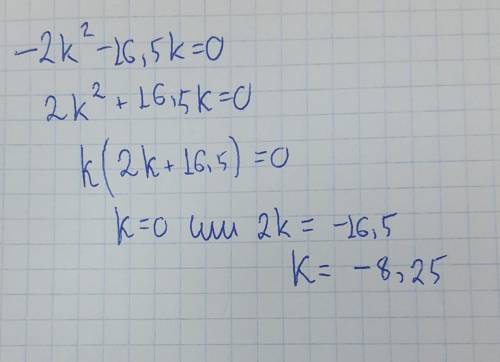 -2k²-16,5k=0
2k²+16,5k=0
k(2k+16,5)=0
k=0 или 2k= -16,5
k= -8,25